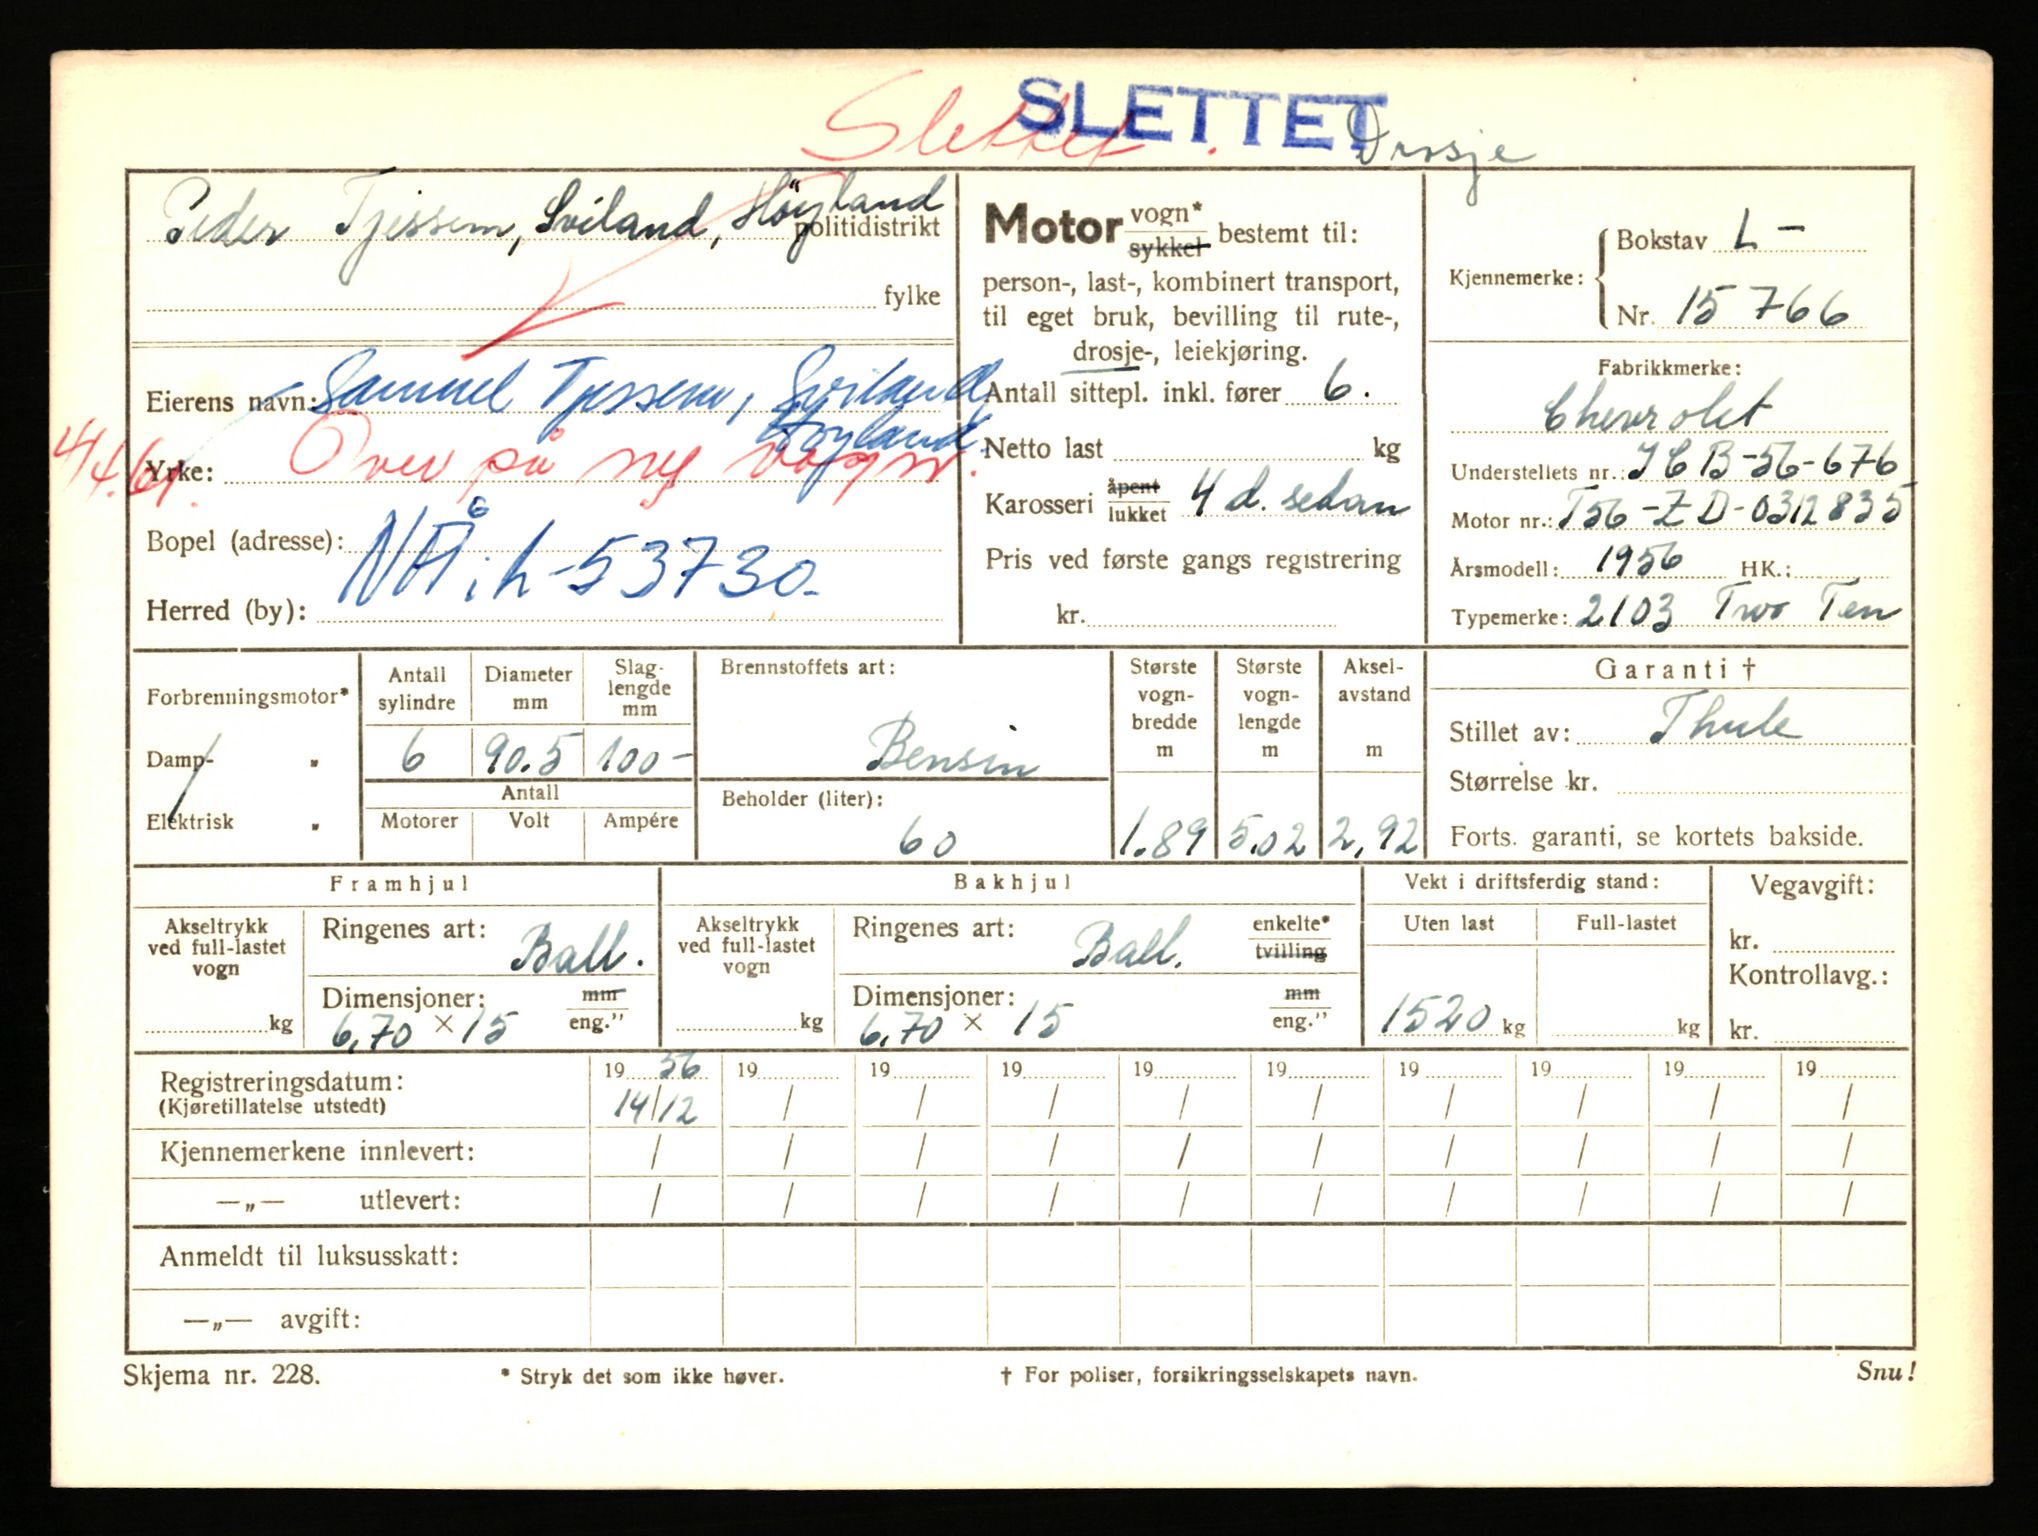 Slettet. SLETTET Drosje
Peder Tjessem, Sviland, Höyland politidistrikt
fylke
Eierens navn: Samuel Tjessem, Sviland,
Høyland.
4/4.61. Yrke: Over på ny vogn.
Bopel (adresse):
NÅ: L-53730.
Herred (by):
Motor vogn* sykkel bestemt til:
person-, last-, kombinert transport,
til eget bruk, bevilling til rute-,
drosje-, leiekjøring.
Antall sittepl. inkl. fører 6.
Netto last kg
Karosseri åpent lukket 4 d. sedan
Pris ved første gangs registrering
kr.
Kjennemerke: Bokstav L -
Nr. 15766
Fabrikkmerke:
Chevrolet
Understellets nr.: JCB-56-676
Motor nr.: T56-ZD-0312835
Årsmodell: 1956 HK.:
Typemerke: 2103 Two Ten
Forbrenningsmotor*
Damp- "
Elektrisk "
Antall sylindre
6
Diameter mm
90.5
Slaglengde mm
100-
Antall
Motorer Volt Ampére
Brennstoffets art:
Bensin
Beholder (liter):
60
Største vognbredde m
1.89
Største vognlengde m
5.02
Akselavstand m
2,92
Garanti †
Stillet av: Thule
Størrelse kr.
Forts. garanti, se kortets bakside.
Framhjul
Akseltrykk ved full-lastet vogn
kg
Ringenes art: Ball.
Dimensjoner: mm eng."
6,70 × 15
Bakhjul
Akseltrykk ved full-lastet vogn
kg
Ringenes art: Ball. enkelte* tvilling
Dimensjoner: mm eng."
6,70 × 15
Vekt i driftsferdig stand:
Uten last Full-lastet
1520 kg kg
Vegavgift:
kr.
Kontrollavg.:
kr.
Registreringsdatum: 19 56 19 19 19 19 19 19 19 19 19
(Kjøretillatelse utstedt) 14/12 / / / / / / / / /
Kjennemerkene innlevert: / / / / / / / / / /
—„— utlevert: / / / / / / / / / /
Anmeldt til luksusskatt:
—„— avgift:
Skjema nr. 228. * Stryk det som ikke høver. † For poliser, forsikringsselskapets navn. Snu!